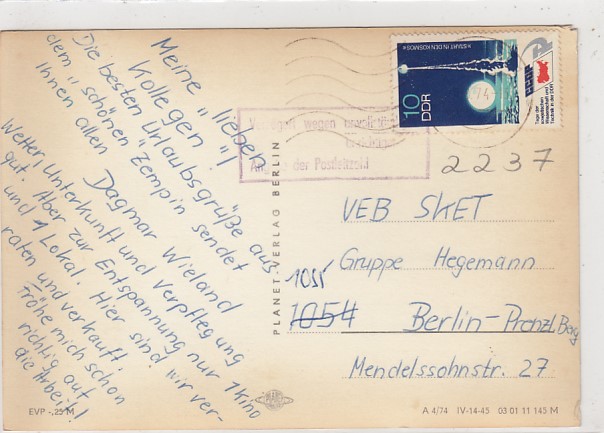 Meine "lieben"
Kollegen!
Die besten Urlaubsgrüße aus
dem "schönen" Zempin sendet
Ihnen allen
Dagmar Wieland
Wetter, Unterkunft und Verpflegung
gut. Aber zur Entspannung nur 1 Kino
und 1 Lokal. Hier sind wir ver-
raten und verkauft.
Fröhe mich schon
richtig auf
die Arbeit!
EVP -,25 M
PLANET-VERLAG BERLIN
wegen
Angabe der Postleitzahl
»START IN DEN KOSMOS«
10
DDR
Tage der
sowjetischen
Wissenschaft und
Technik in der DDR
74
2237
VEB SKET
Gruppe Hegemann
1055
1054 Berlin-Prenzl. Berg
Mendelssohnstr. 27
A 4/74 IV-14-45 03 01 11 145 M